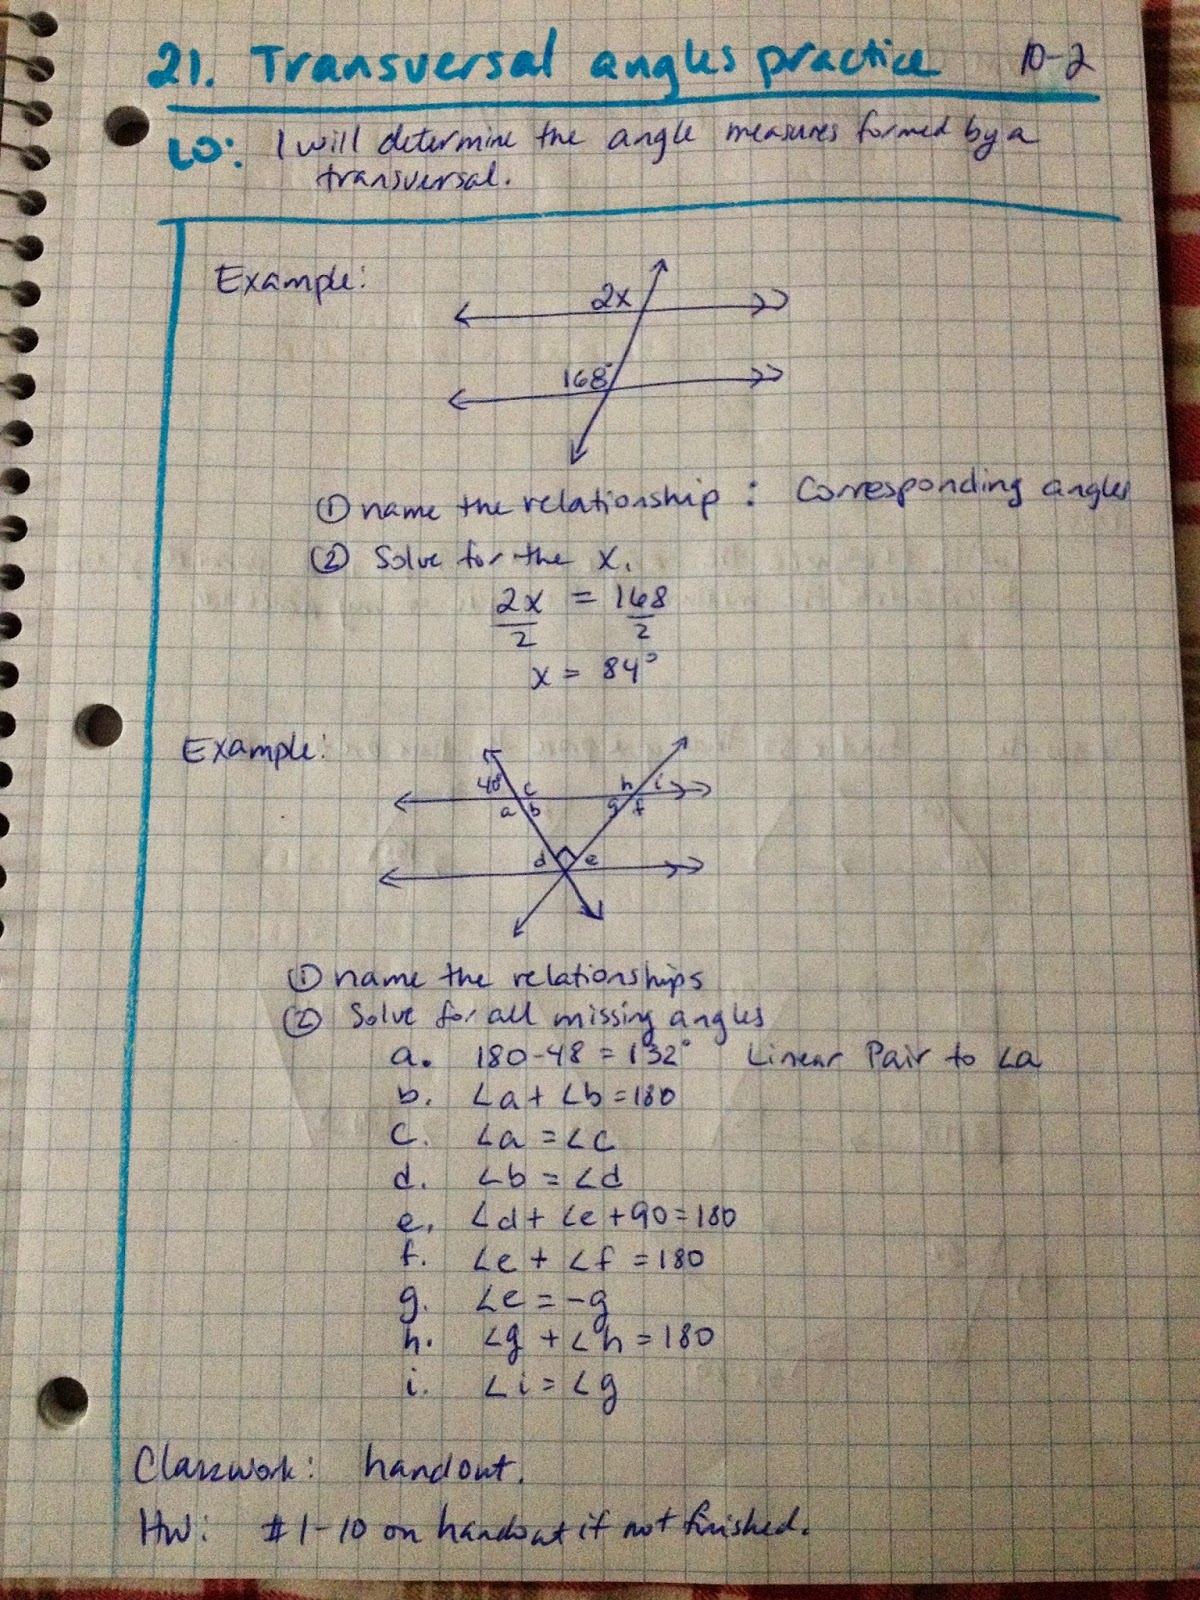 21. Transversal angles practice 10-2
LO: I will determine the angle measures formed by a
transversal.
Example:
2x
168°
① name the relationship : Corresponding angles
② Solve for the x.
2x = 168
2 2
x = 84°
Example:
48° c h i
a b g f
d e
① name the relationships
② Solve for all missing angles
a. 180-48 = 132° Linear Pair to ∠a
b. ∠a + ∠b = 180
c. ∠a = ∠c
d. ∠b = ∠d
e. ∠d + ∠e + 90 = 180
f. ∠e + ∠f = 180
g. ∠e = -g
h. ∠g + ∠h = 180
i. ∠i = ∠g
Classwork: handout.
HW: #1-10 on handout if not finished.